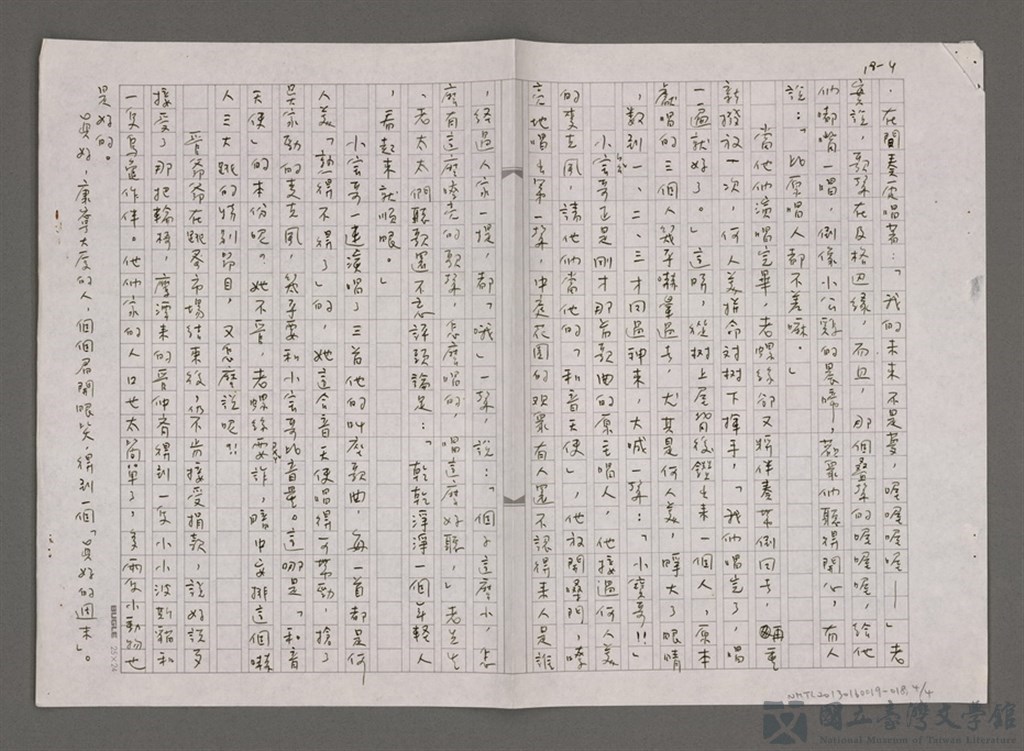 19-4
．在間奏處唱著：「我的未來不是夢，喔喔喔喔——」老
實說，歌聲在及格边緣，而且，那個疊聲的喔喔喔，給他
们嘟嘴一唱，倒像小公鷄的晨啼，觀眾们聽得開心，有人
說：「比原唱人都不差嘛。」
當他们演唱完畢，老蝶絲卻又將伴奏帶倒回去，重
新撥放一次，何人美拼命对树下揮手，「我们唱完了，唱
一遍就好了。」這時，從树上屋背後鑽出來一個人，原本
獻唱的三個人幾乎嚇暈過去，尤其是何人美，睜大了眼睛
，數到一、二、三才回過神來，大喊一聲：「小寶哥!!」
小寶哥正是剛才那首歌曲的原主唱人，他接過何人美
的麥克風，請他们當他的「和音天使」，他放開嗓門，嘹
亮地唱出第一聲，中庭花園的观眾有人還不認得來人是誰
，經過人家一提，都「哦」一聲，說：「個子這麼小，怎
麼有這麼嘹亮的歌聲，怎麼唱的，唱這麼好聽，」老先生
、老太太們聽歌還不忘評頭論足：「乾乾淨淨一個年輕人
，看起來就順眼。」
小寶哥一連演唱了三首他的叫座歌曲，每一首都是何
人美「熟得不得了」的，她這合音天使唱得可帶勁，搶了
吳家勁的麥克風，幾乎要和小寶哥比音量。這哪是「和音
天使」的本份呢？她不管，老蝶絲要詐，暗中安排這個嚇
人三大跳的特別節目，又怎麼說呢?!
管爺爺在跳蚤市場結束後，仍不肯接受捐款，說好說歹
接受了那把輪椅，摩漂來的管仲齊得到一隻小小波斯貓和
一隻烏龜作伴。他们家的人口也太簡單了，多兩隻小動物也
是好的。
真好，康寧大廈的人，個個眉開眼笑，得到一個「真好的週末」。
BUGLE 25×24
NMTL20130160019-018, 4/4
國立臺灣文學館
National Museum of Taiwan Literature